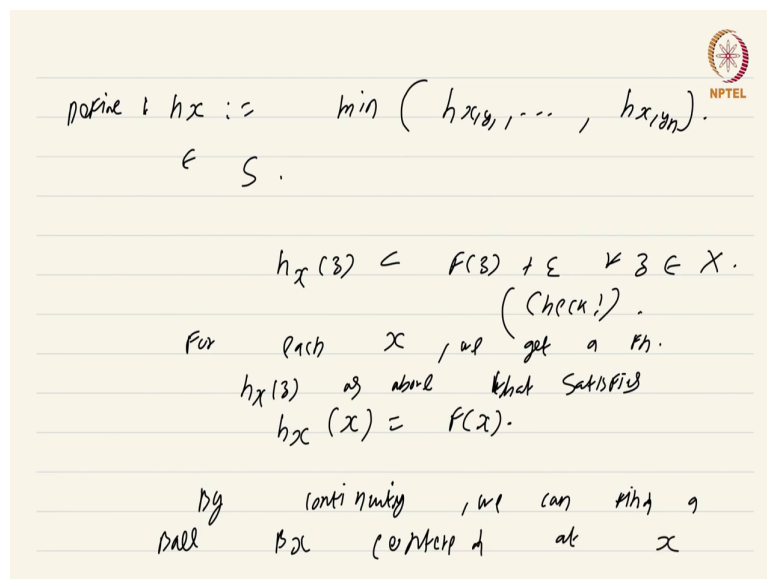 NPTEL
Define : hx := min ( hx,y1, ..., hx,yn ).
∈ S.
hx(z) < F(z) + ε ∀ z ∈ X.
(Check!).
For each x, we get a Fn.
hx(z) as above that satisfies
hx(x) = F(x).
By continuity, we can find a
Ball Bx centered at x